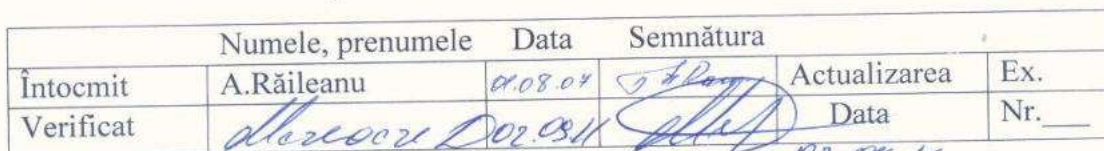 Numele, prenumele Data Semnătura
Întocmit A.Răileanu 01.08.07 Actualizarea Ex.
Verificat 02.09.11 Data Nr.___